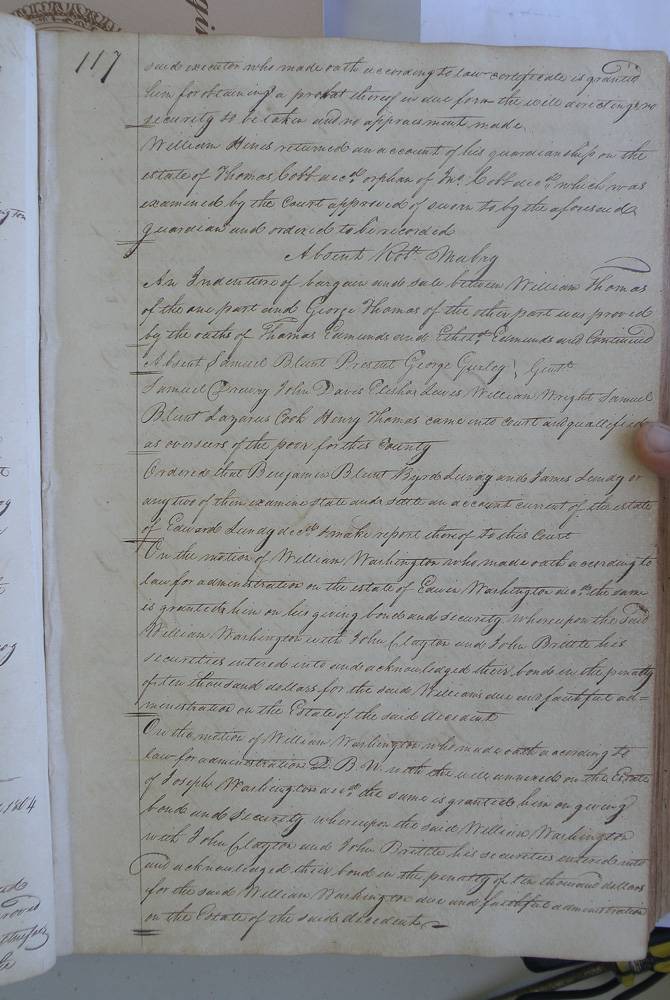 117
said executor who made oath according to law certificate is granted
him for obtaining a probat thereof in due form the will directing no
security to be taken and no appraisment made.
William Hines returned an account of his guardianship on the
estate of Thomas Cobb decd. orphan of Jno. Cobb decd. which was
examined by the Court approved of sworn to by the aforesaid
guardian and ordered to be recorded
Absent Robt. Mabry
An Indenture of bargain and sale between William Thomas
of the one part and George Thomas of the other part was proved
by the oaths of Thomas Edmunds and Edmunds and Continued
Absent Samuel Blunt Present George Gurley, Gentn.
Samuel Drewry John Davis Elisha Lewis William Wright Samuel
Blunt Lazarus Cook Henry Thomas came into Court and qualified
as overseers of the poor for this County
Ordered that Benjamin Blunt Byrd Lundy and James Lundy or
any two of them examine state and settle an account current of the estate
of Edward Lundy decd. & make report thereof to this Court
On the motion of William Washington who made oath according to
law for administration on the estate of Edwin Washington decd. the same
is granted him on his giving bond and security whereupon the said
William Washington with John Clayton and John Brittle his
securities entered into and acknowledged their bond in the penalty
of ten thousand dollars for the said Williams due and faithful ad=
ministration on the Estate of the said decedent
On the motion of William Washington who made oath according to
law for administration D. B. N. with the will annexed on the Estate
of Joseph Washington decd. the same is granted him on giving
bond and security whereupon the said William Washington
with John Clayton and John Brittle his securities entered into
and acknowledged their bond in the penalty of ten thousand dollars
for the said William Washington due and faithful administration
on the Estate of the said decedent
1804